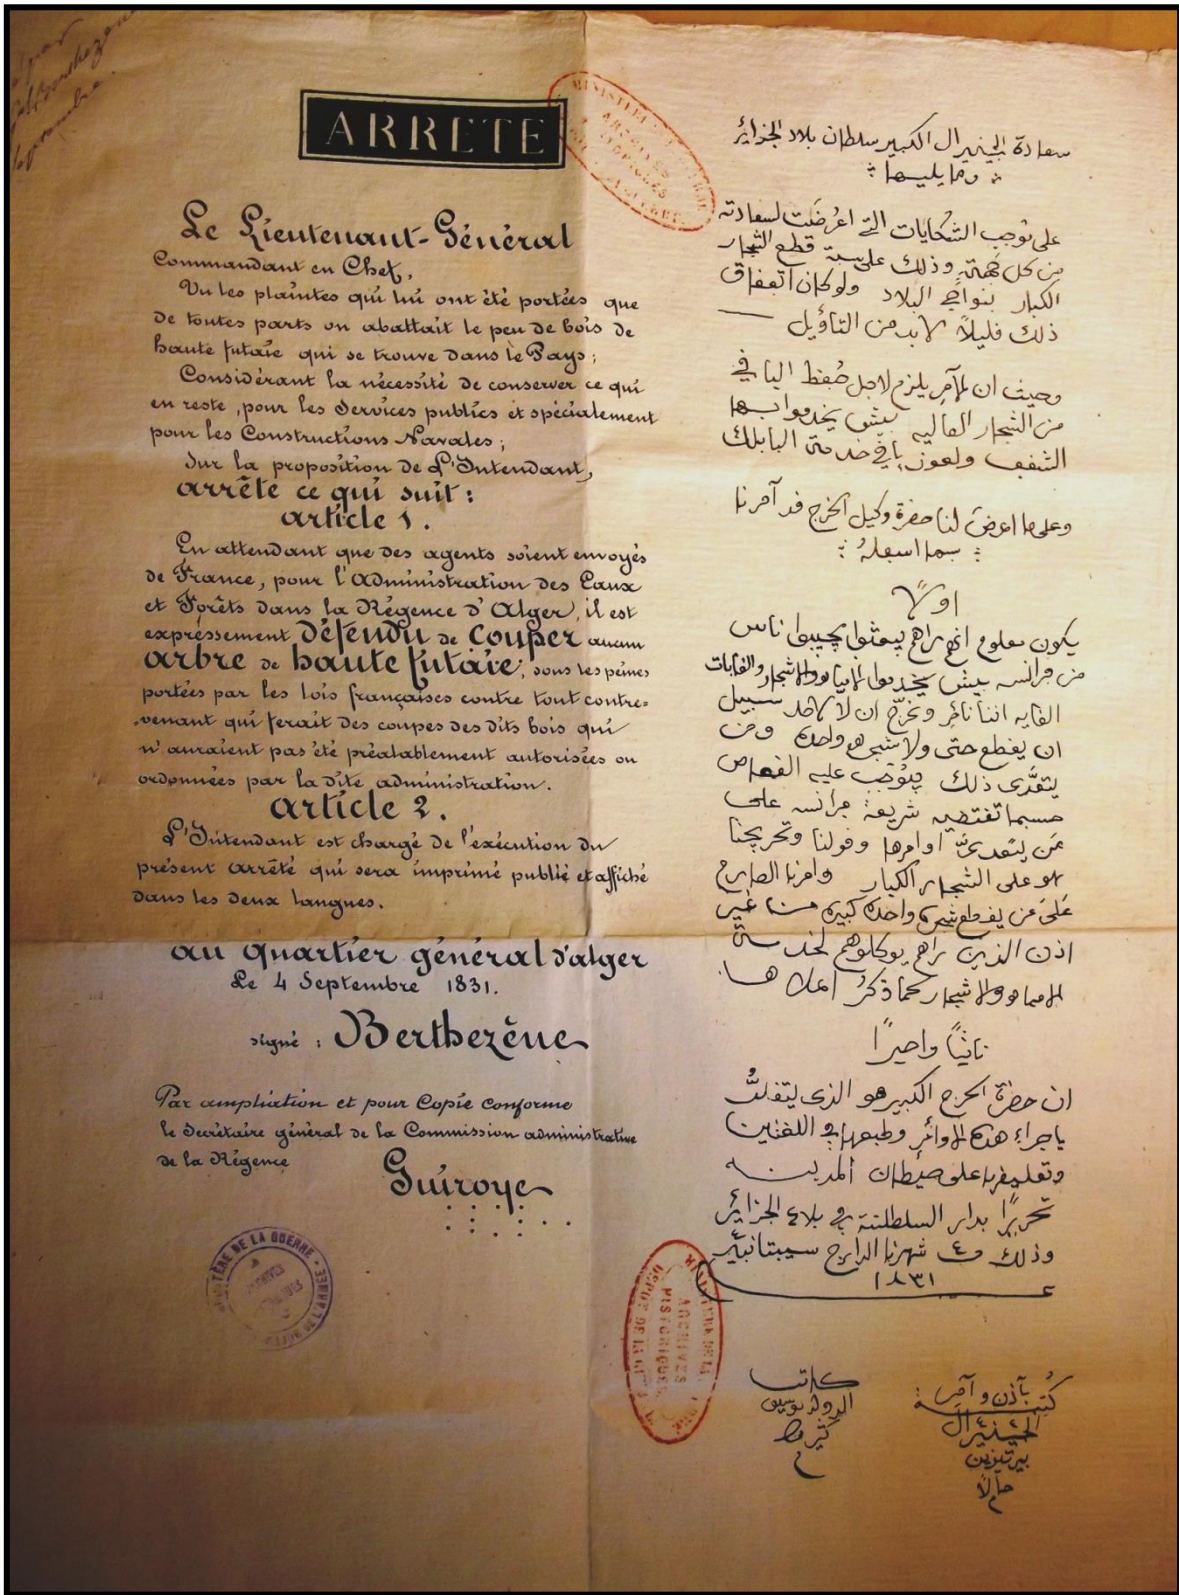 ARRETE
Le Lieutenant-Général
Commandant en Chef,
Vu les plaintes qui lui ont été portées que
de toutes parts on abattait le peu de bois de
haute futaie qui se trouve dans le Pays;
Considérant la nécessité de conserver ce qui
en reste, pour les Services publics et spécialement
pour les Constructions Navales;
Sur la proposition de L'Intendant,
arrête ce qui suit:
article 1.
En attendant que des agents soient envoyés
de France, pour l'Administration des Eaux
et Forêts dans la Régence d'Alger, il est
expréssement défendu de couper aucun
arbre de haute futaie, sous les peines
portées par les lois françaises contre tout contre=
venant qui ferait des coupes des dits bois qui
n'auraient pas été préalablement autorisées ou
ordonnées par la dite administration.
article 2.
L'Intendant est chargé de l'exécution du
présent arrêté qui sera imprimé publié et affiché
dans les deux langues.
au quartier général d'alger
Le 4 Septembre 1831.
signé: Berthezène
Par ampliation et pour Copie conforme
le Secrétaire général de la Commission administrative
de la Régence
Guiroye
سعادة الجينيرال الكبير سلطان بلاد الجزائر
وما يليها
على توجب الشكايات التي اعرضت لسعادته
من كل وذلك على قطع الشجار
الكبار بنواحي البلاد ولو كان
ذلك قليلاً لابد من التاؤيل
وحيث ان يلزم لاجل
من الشجار العاليه بيش يخدموا بها
في خدمة البايلك
وعلى ما اعرض لنا حضرة وكيل الخرج قد آمرنا
بما اسفله
اولاً
يكون معلوم انهم راهم يبعثوا يجيبوا ناس
من فرانسه بيش يخدموا والغابات
اننا نامر ونحرّج ان لا لاحد سبيل
ان يقطع حتى ولا شجره واحده ومن
يتعدّى ذلك عليه القصاص
حسبما تقتضيه شريعة فرانسه على
من يتعدى اوامرها وقولنا وتحريجنا
هو على الشجار الكبار وامرنا الصارم
على من يقطع شجره واحده كبيره من غير
اذن الذين راهم يوكلوهم لخدمة
كما ذكر اعلاه
ثانياً واخيراً
ان حضرة الخرج الكبير هو الذي
باجراء هذه الاوامر وطبعها في اللغتين
وتعليقها على حيطان المدينه
تحريراً بدار السلطنة في بلاد الجزائر
وذلك ٤ شهرنا سيبتانبير
١٨٣١
كاتب
كُتب بآذن وآمر
الجينيرال
بيرتيزين
حالاً
MINISTÈRE DE LA GUERRE
ARCHIVES
HISTORIQUES